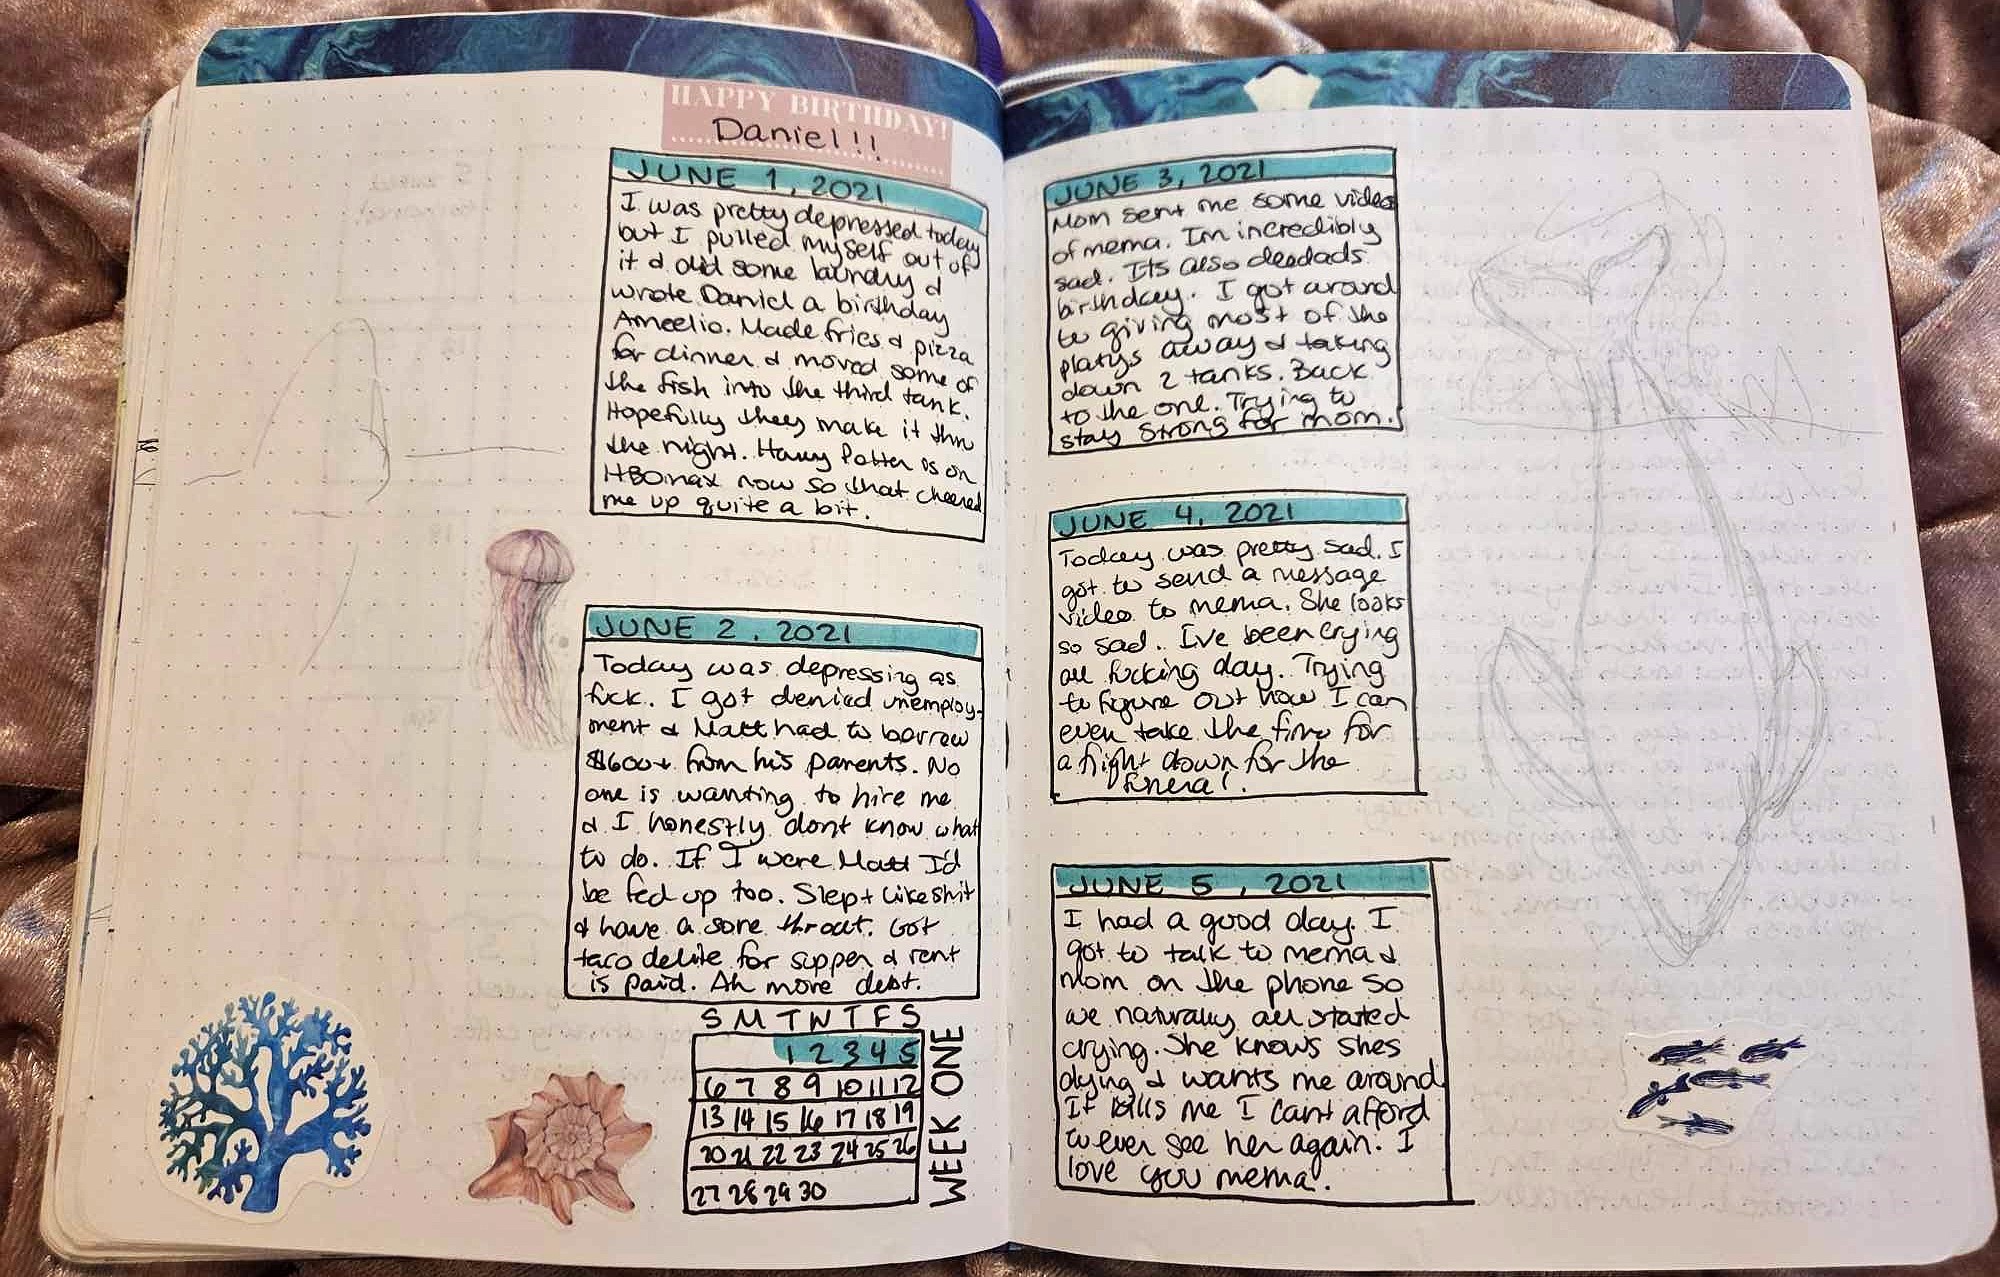 HAPPY BIRTHDAY!
Daniel!!
JUNE 1, 2021
I was pretty depressed today
but I pulled myself out of
it & did some laundry &
wrote Daniel a birthday
Ameelio. Made fries & pizza
for dinner & moved some of
the fish into the third tank.
Hopefully they make it thru
the night. Harry Potter is on
HBOmax now so that cheered
me up quite a bit.
JUNE 2, 2021
Today was depressing as
fuck. I got denied unemploy-
ment & Matt had to borrow
$600+ from his parents. No
one is wanting to hire me
& I honestly dont know what
to do. If I were Matt I'd
be fed up too. Slept like shit
& have a sore throat. Got
taco delite for supper & rent
is paid. Ah more debt.
S M T W T F S
1 2 3 4 5
6 7 8 9 10 11 12
13 14 15 16 17 18 19
20 21 22 23 24 25 26
27 28 29 30
WEEK ONE
JUNE 3, 2021
Mom sent me some videos
of mema. Im incredibly
sad. Its also deadads
birthday. I got around
to giving most of the
platys away & taking
down 2 tanks. Back
to the one. Trying to
stay strong for mom.
JUNE 4, 2021
Today was pretty sad. I
got to send a message
video to mema. She looks
so sad. I've been crying
all fucking day. Trying
to figure out how I can
even take the time for
a flight down for the
funeral.
JUNE 5, 2021
I had a good day. I
got to talk to mema &
mom on the phone so
we naturally all started
crying. She knows shes
dying & wants me around
It kills me I cant afford
to ever see her again. I
love you mema.